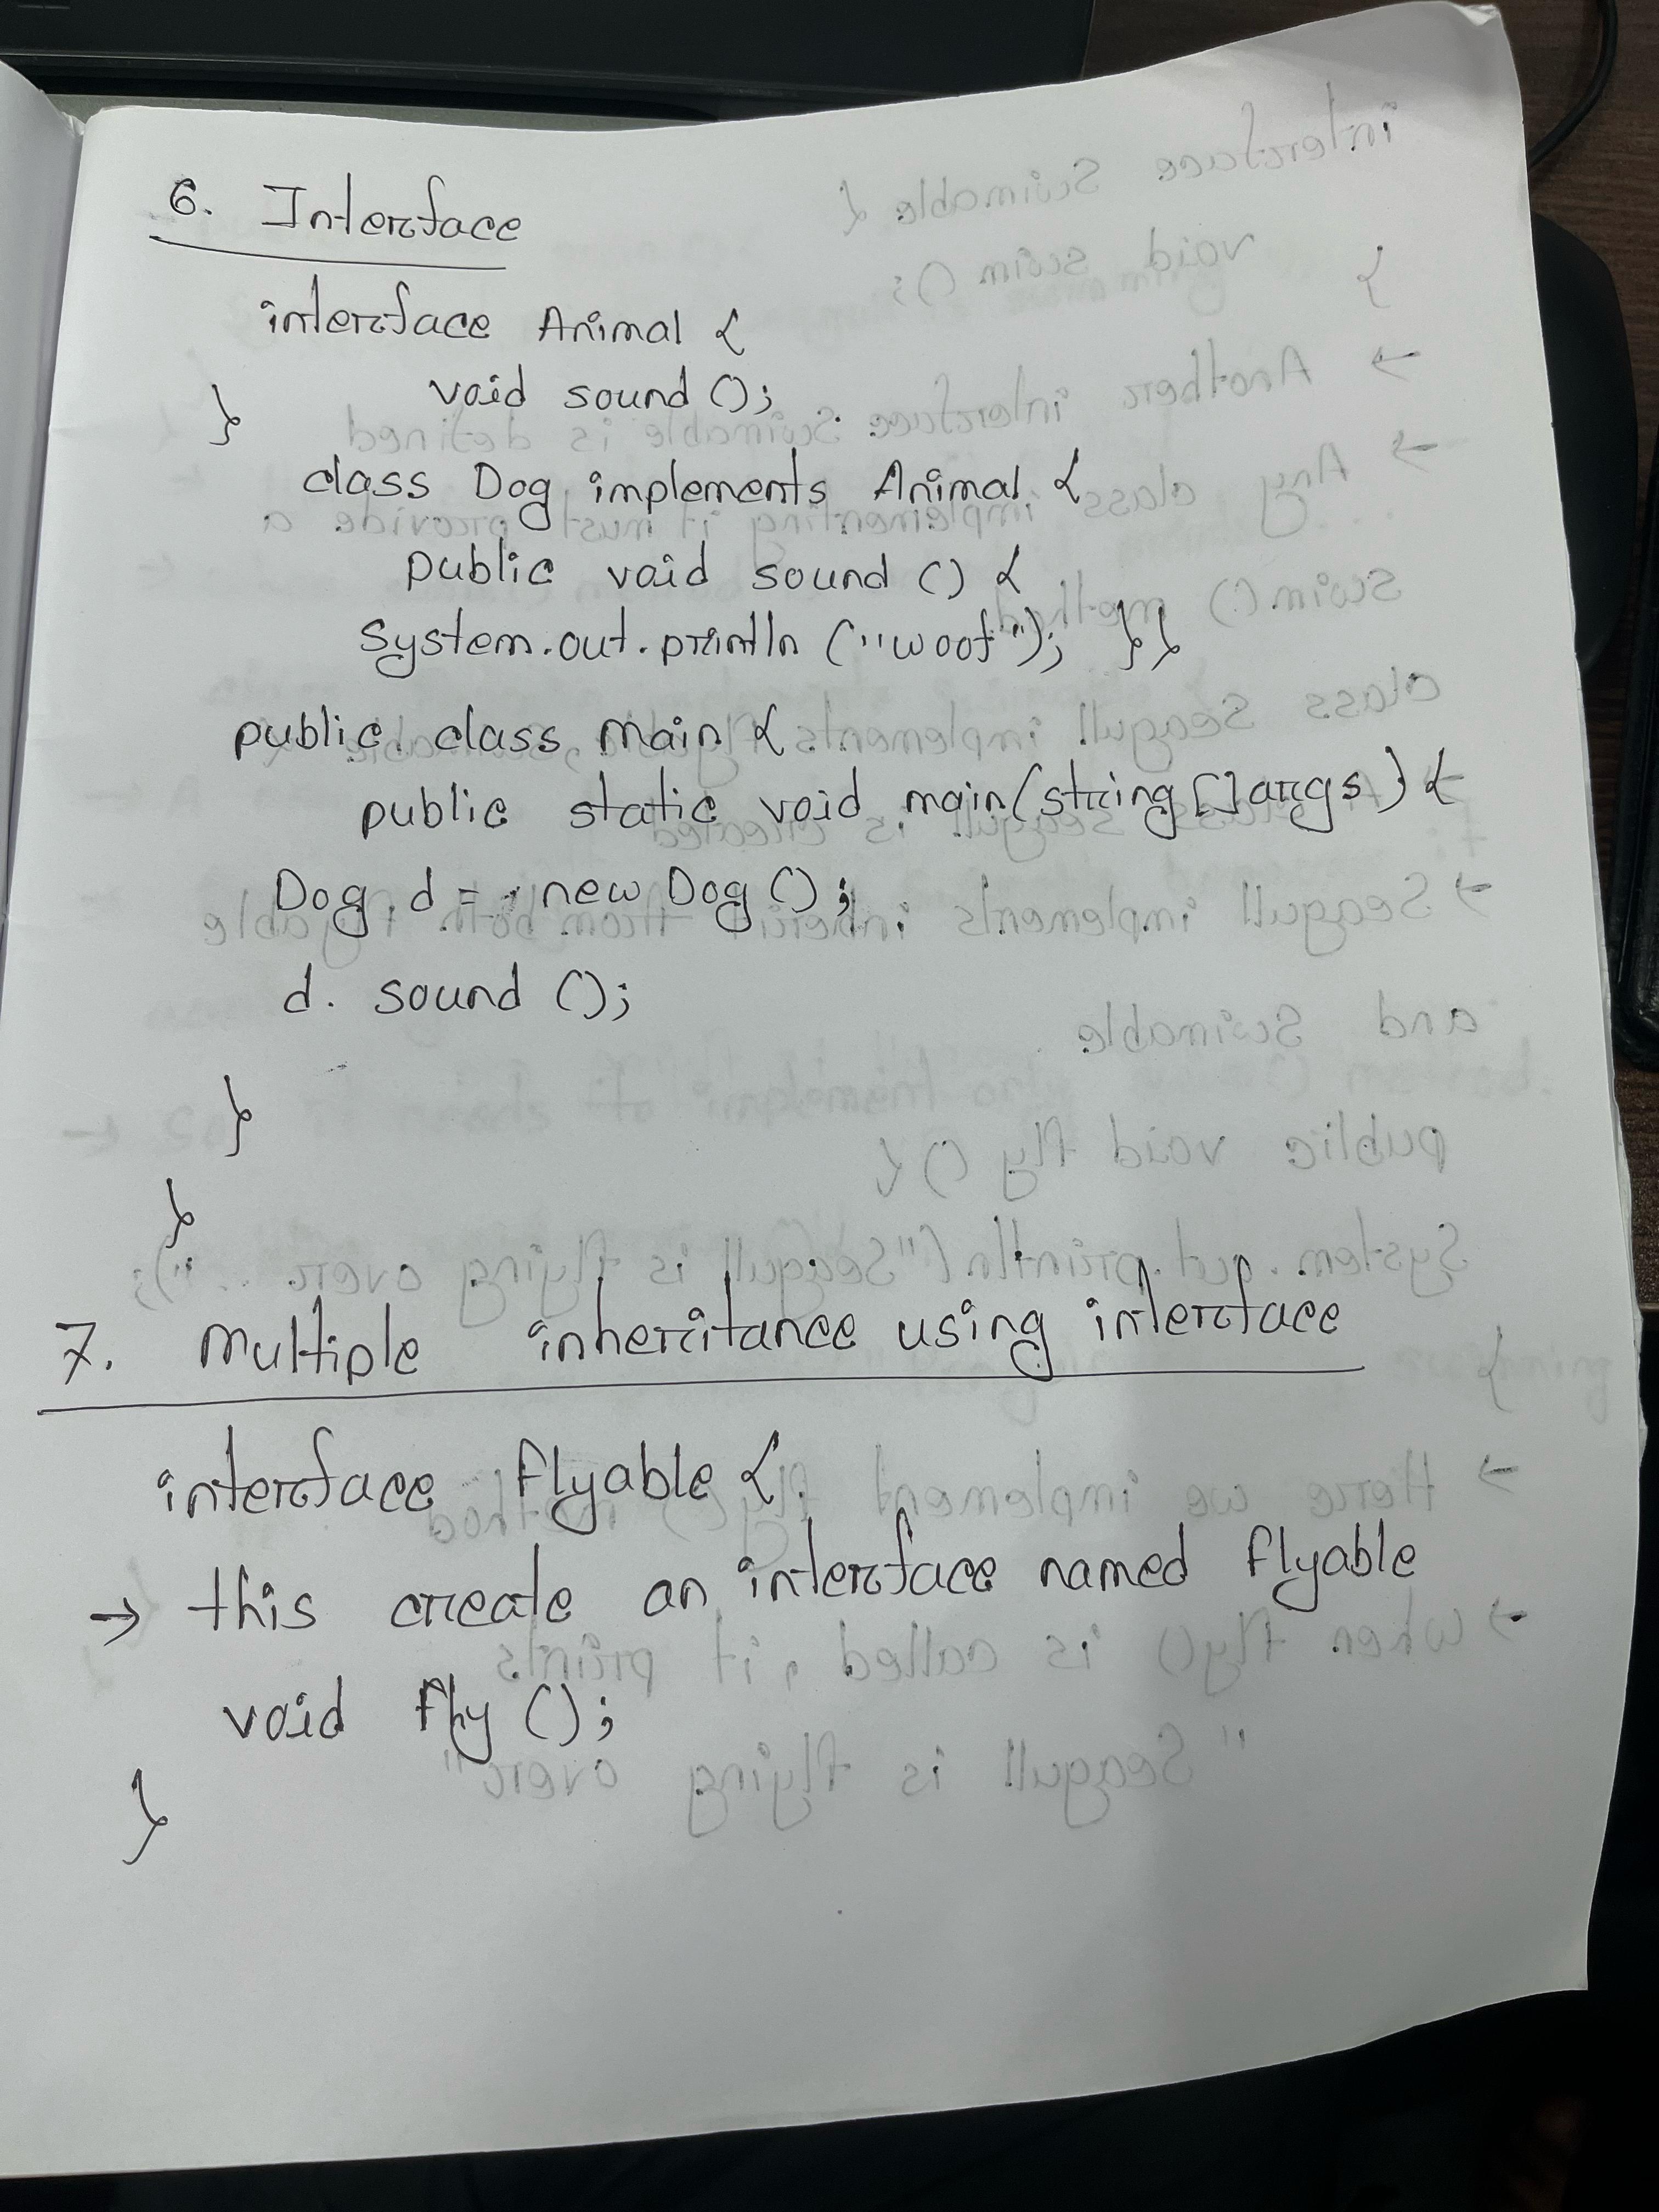 6. Interface
interface Animal {
void sound ();
}
class Dog implements Animal {
public void sound () {
System.out.println ("woof"); }}
public class main {
public static void main(string [] args) {
Dog d = new Dog ();
d. sound ();
}
}
7. Multiple inheritance using interface
interface Flyable {
→ this create an interface named Flyable
void fly ();
}